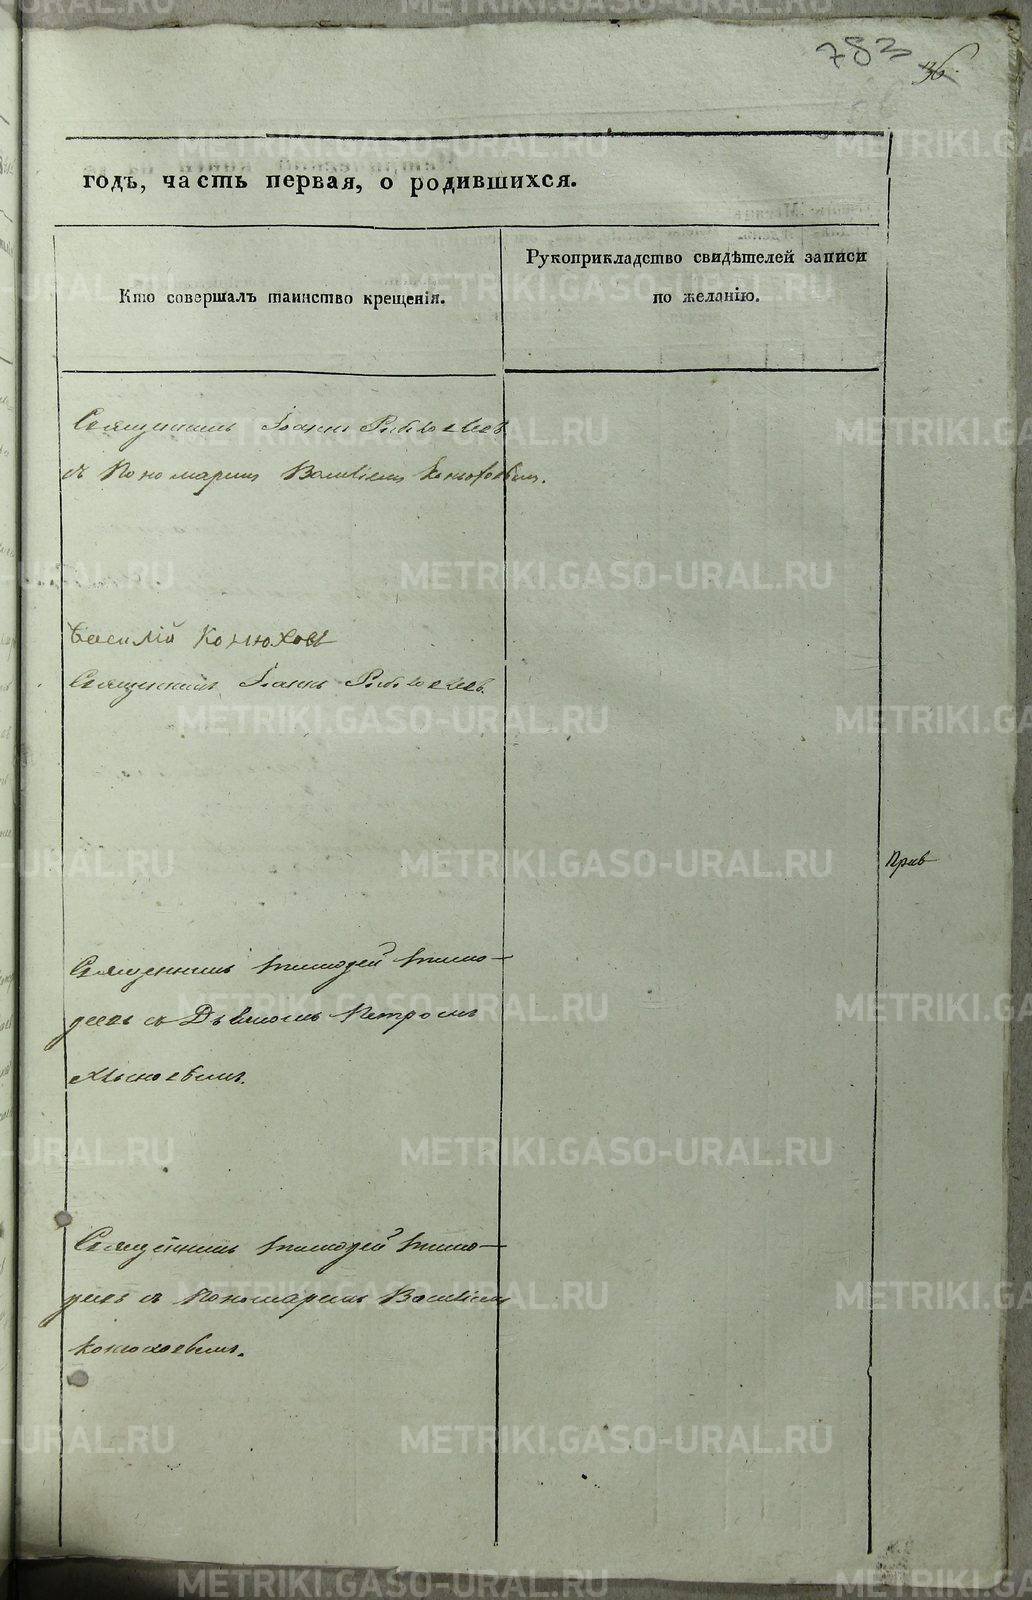 783
36.
годъ, часть первая, о родившихся.
Кто совершалъ таинство крещенія.
Рукоприкладство свидѣтелей записи
по желанію.
Священникъ Іоаннъ
съ Пономаремъ Василіемъ Конюховымъ.
Василій Конюховъ
Священникъ Іоаннъ
Прав
Священникъ Тимофей Тимо-
феевъ съ Дьячкомъ Петромъ
Священникъ Тимофей Тимо-
феевъ съ Пономаремъ Василіемъ
Конюховымъ.
METRIKI.GASO-URAL.RU